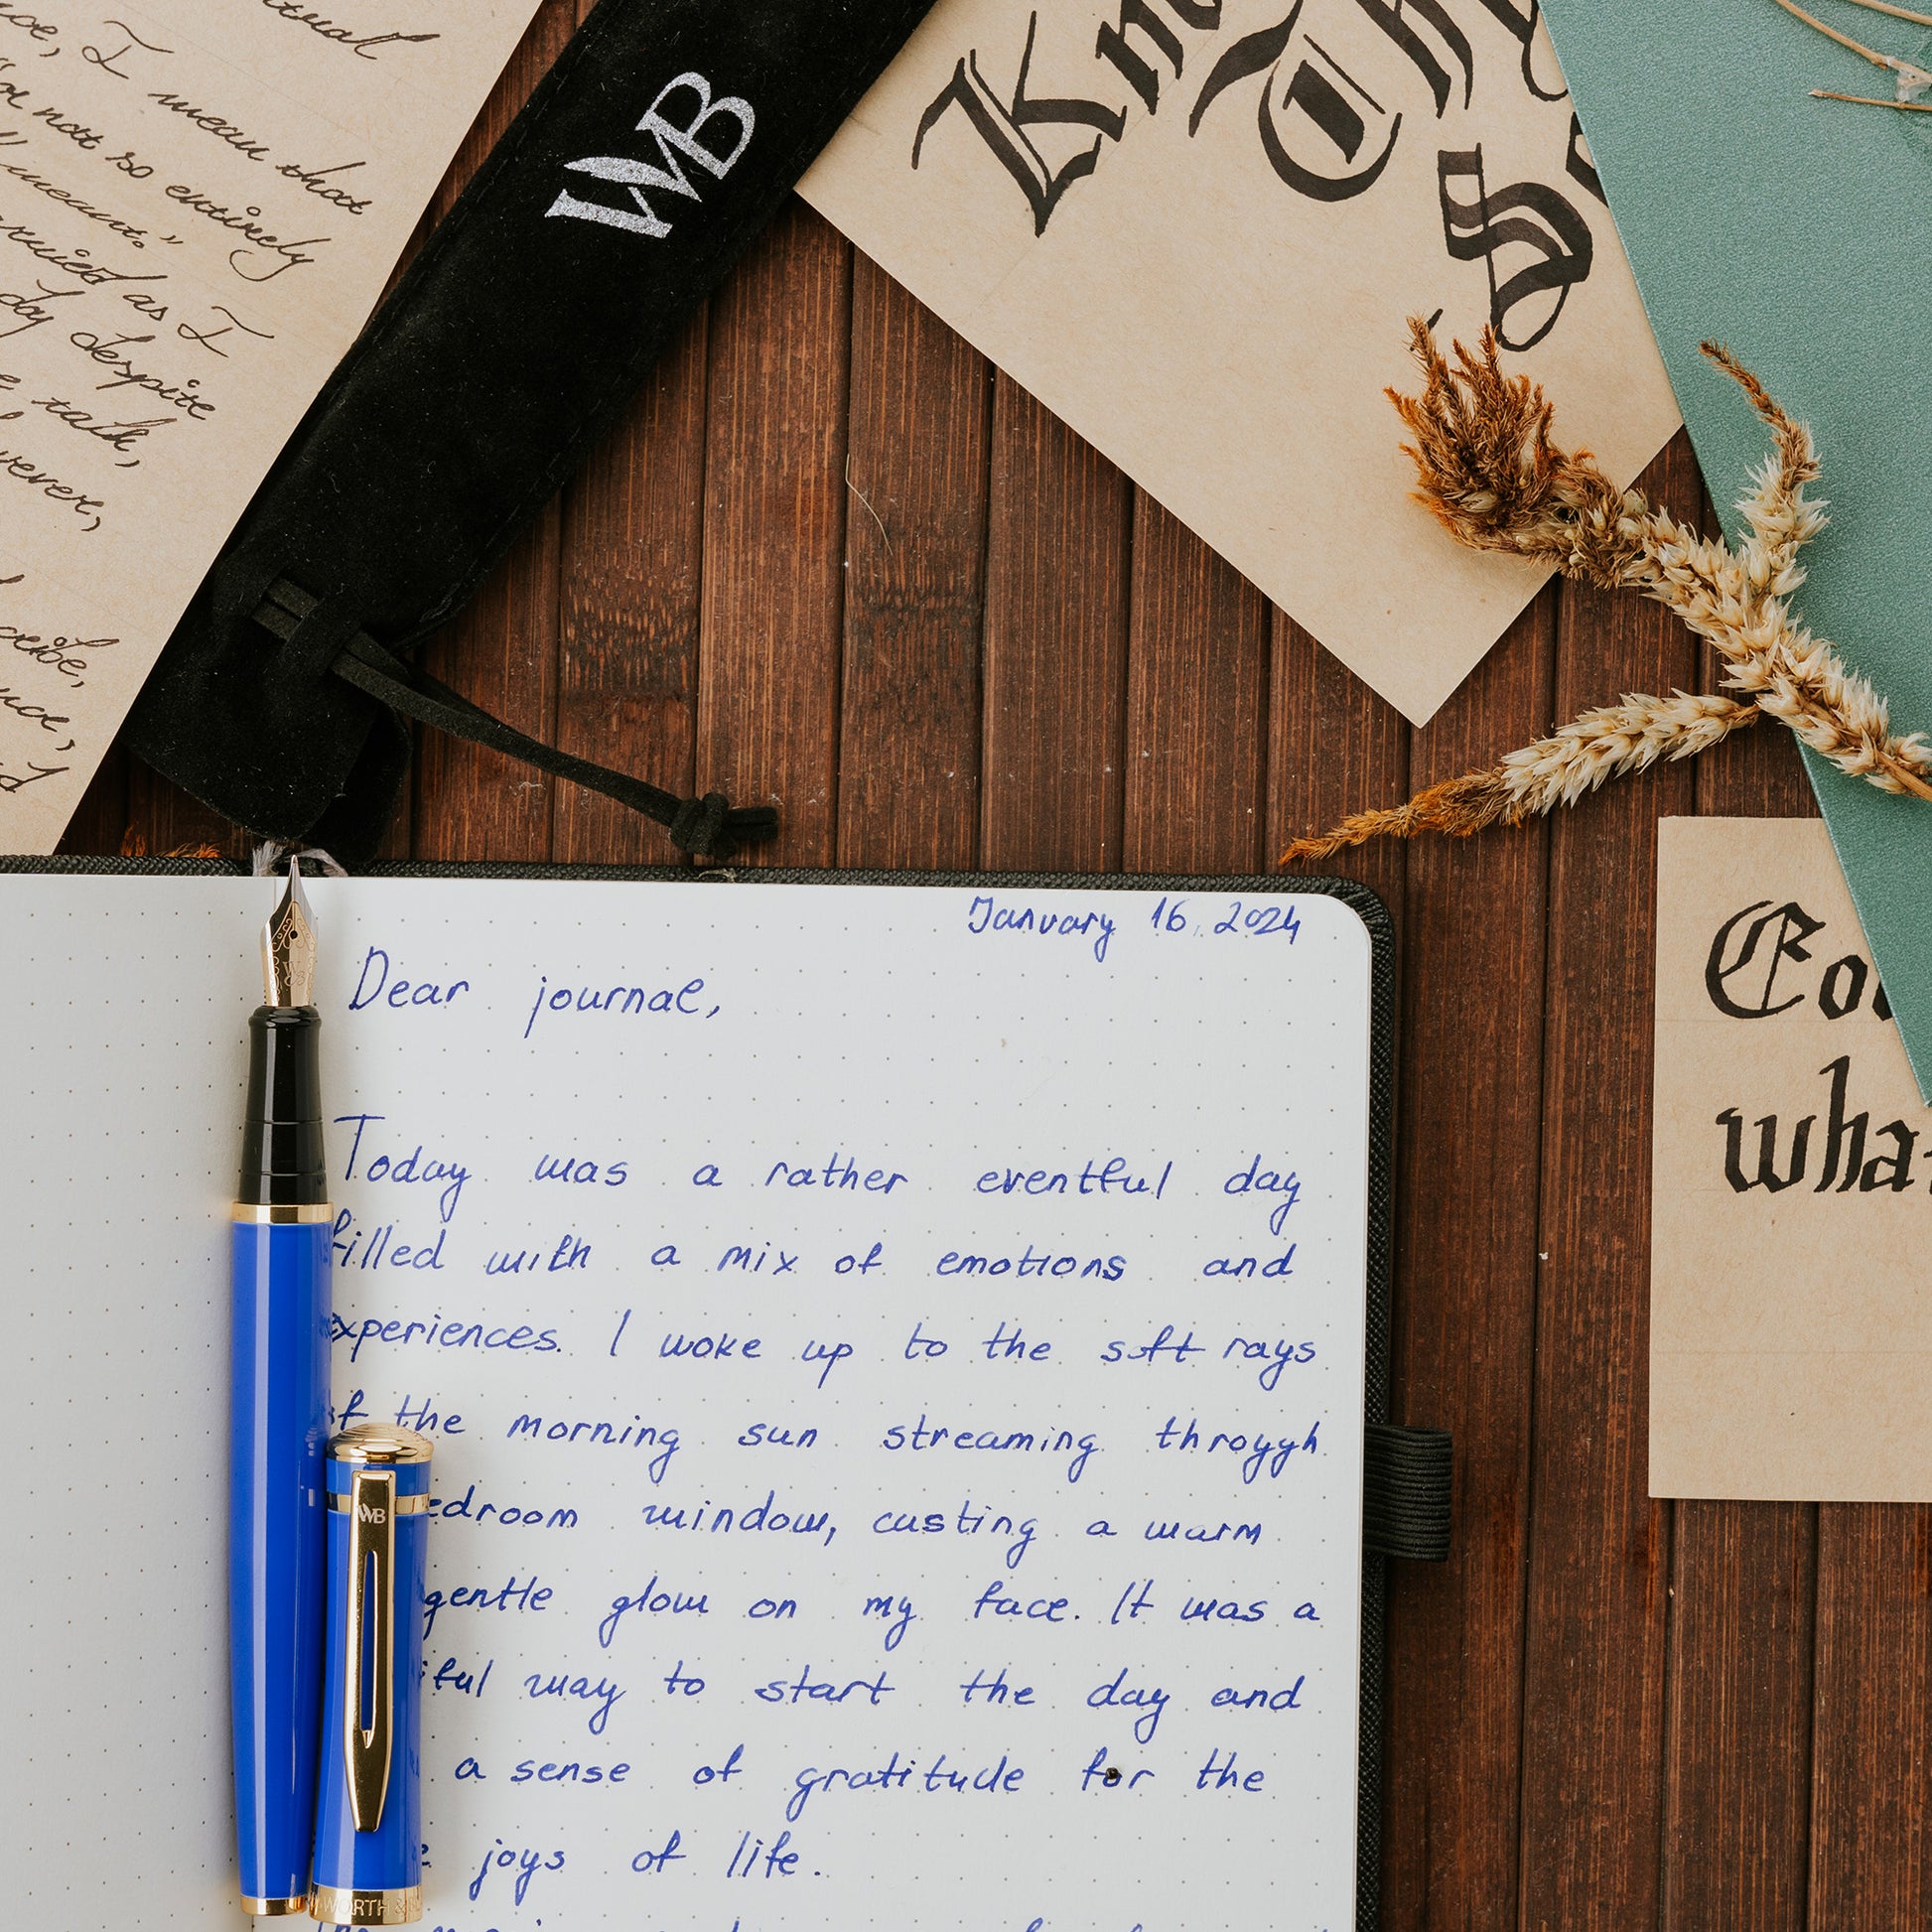 tual
I mean that
not so entirely
meant."
as I
day despite
talk,
WB
Kn
Th
So
January 16, 2024
Dear journal,
Today was a rather eventful day
filled with a mix of emotions and
experiences. I woke up to the soft rays
of the morning sun streaming throygh
edroom window, casting a warm
gentle glow on my face. It was a
iful way to start the day and
a sense of gratitude for the
joys of life.
WB
WORTH &
Cou
what